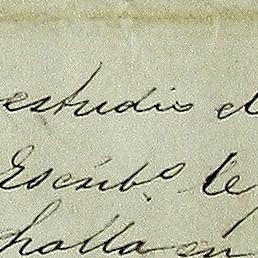 estudio el
Escrib.º le
halla en